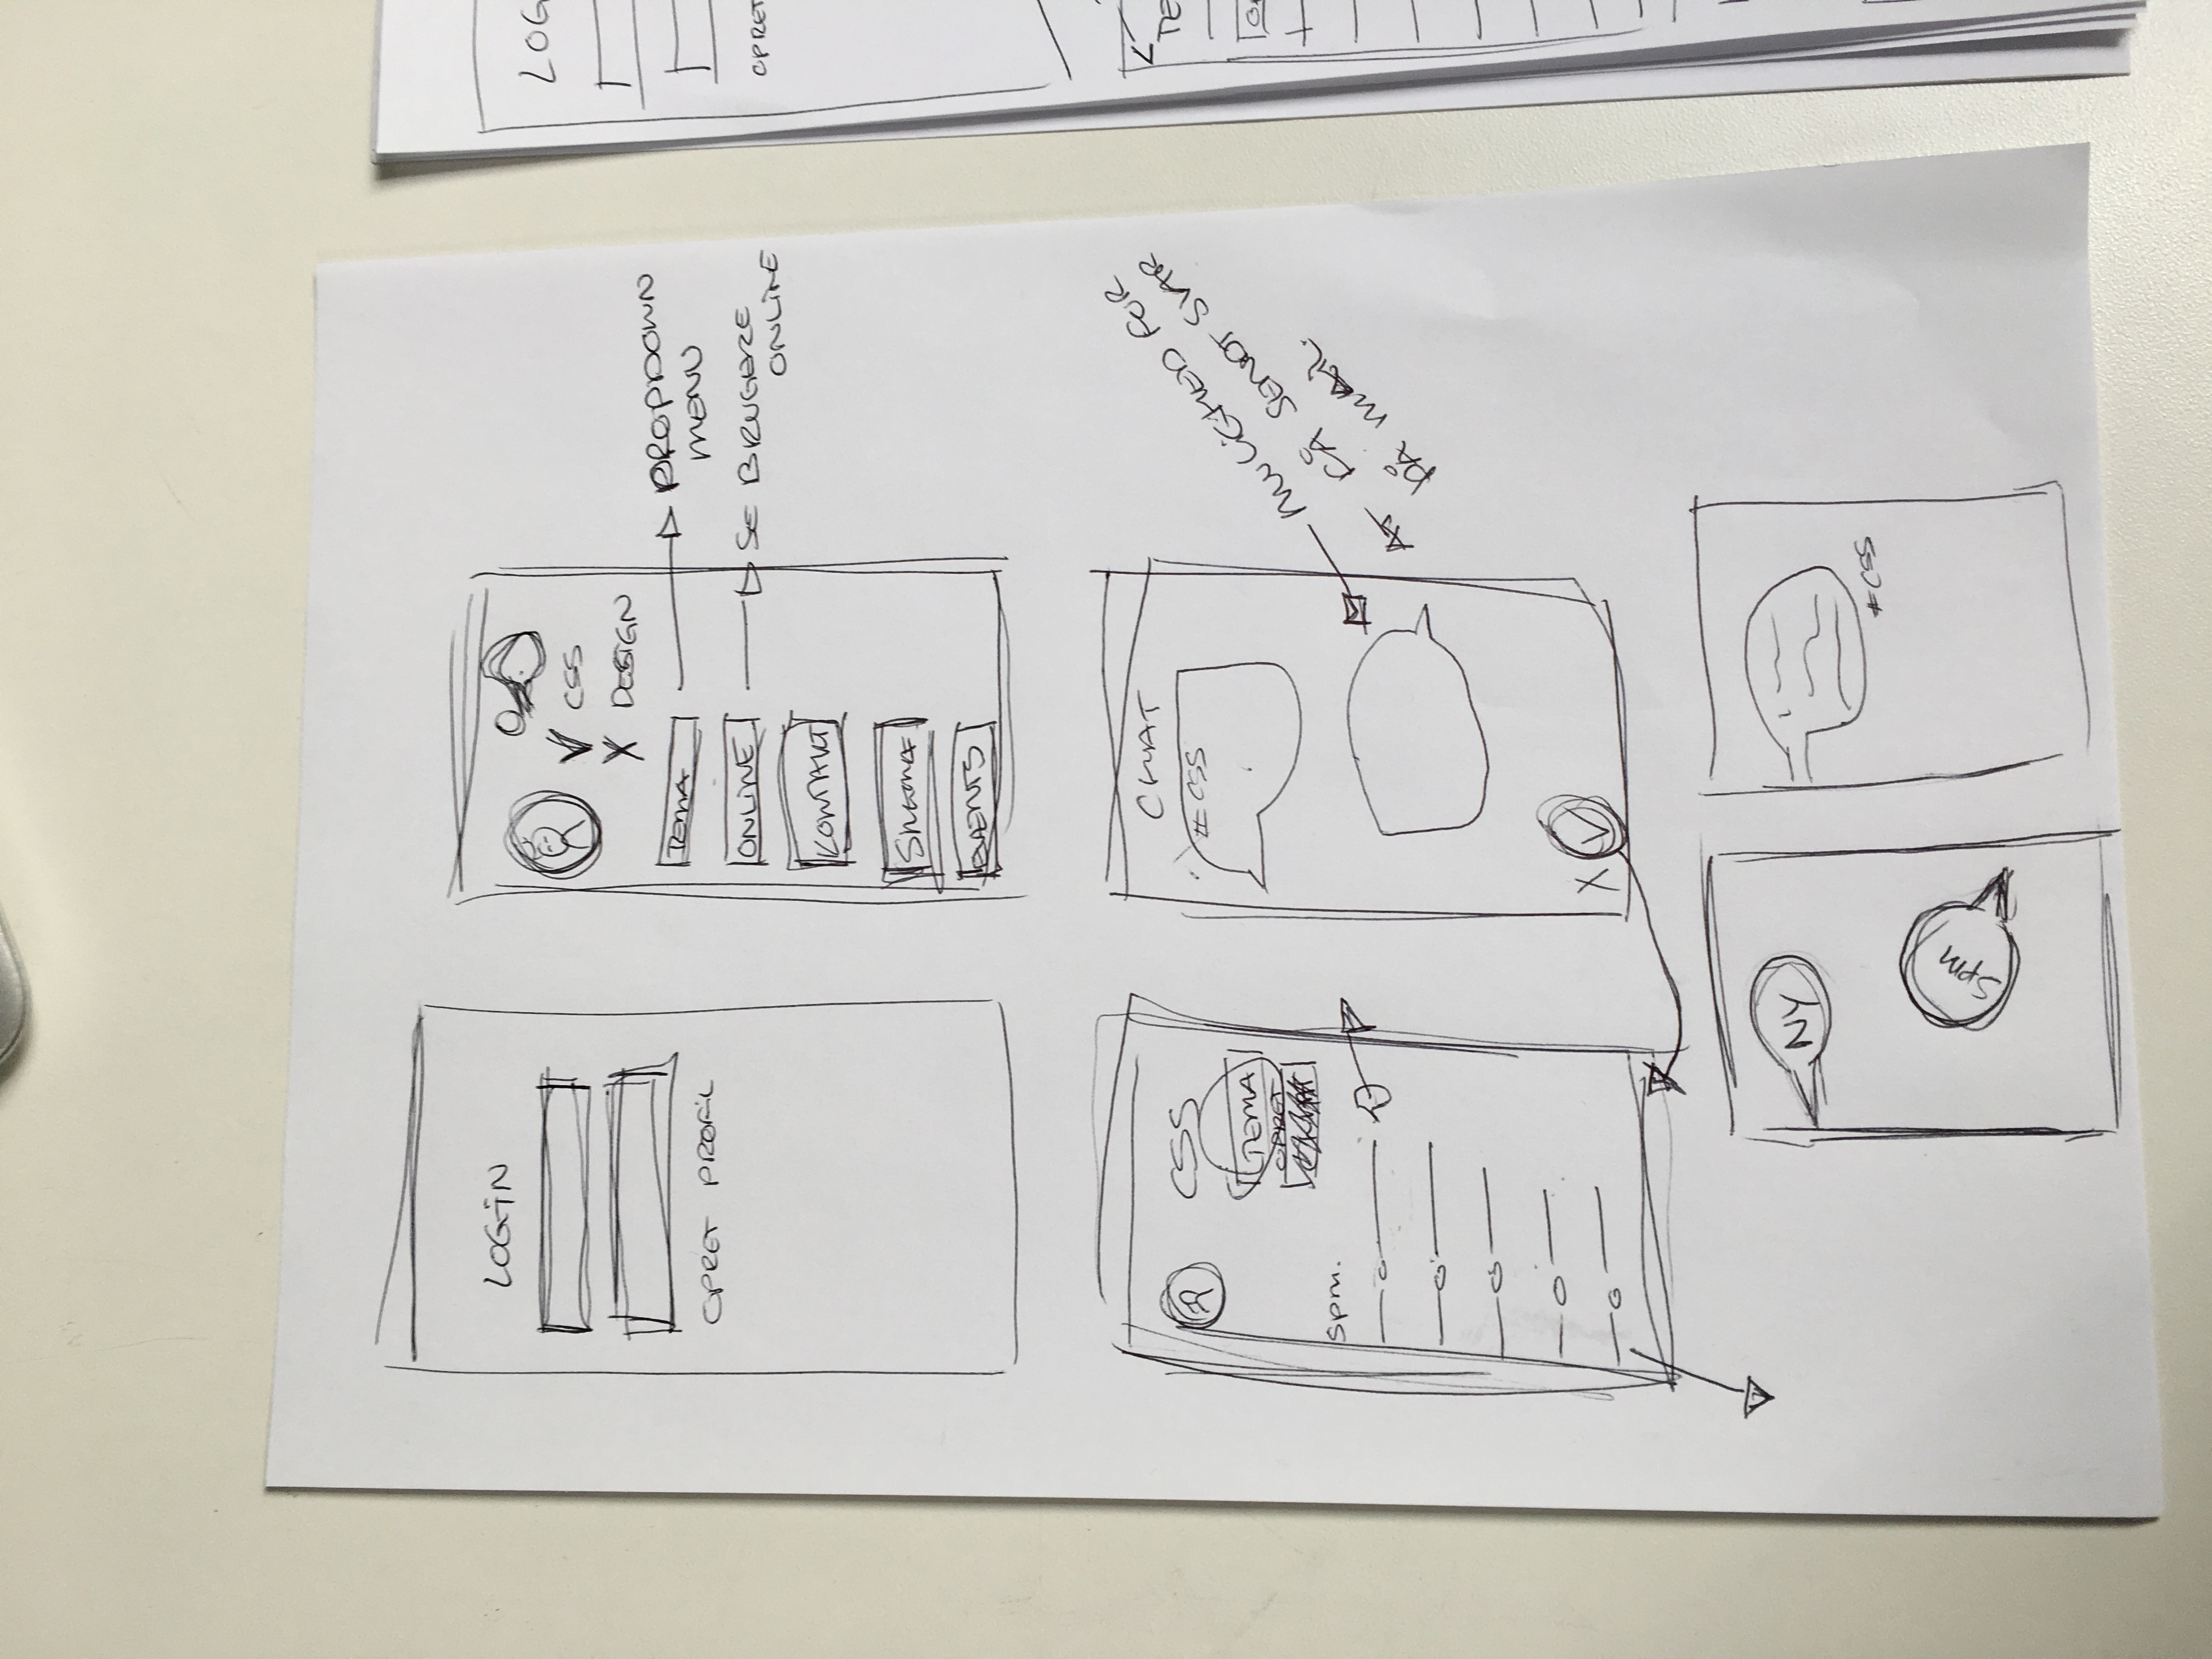 LOGIN
OPRET PROFIL
V CSS
X DESIGN
TEMA
DROPDOWN
MENU
ONLINE
SE BRUGERE
ONLINE
KONTAKT
SKEMA
EVENTS
CSS
TEMA
OPRET
spm.
CHAT
# CSS
MULIGHED FOR
AT FÅ SENDT SVAR
PÅ MAIL.
X V
NY
Spm
# CSS
LOG
OPRET
TE